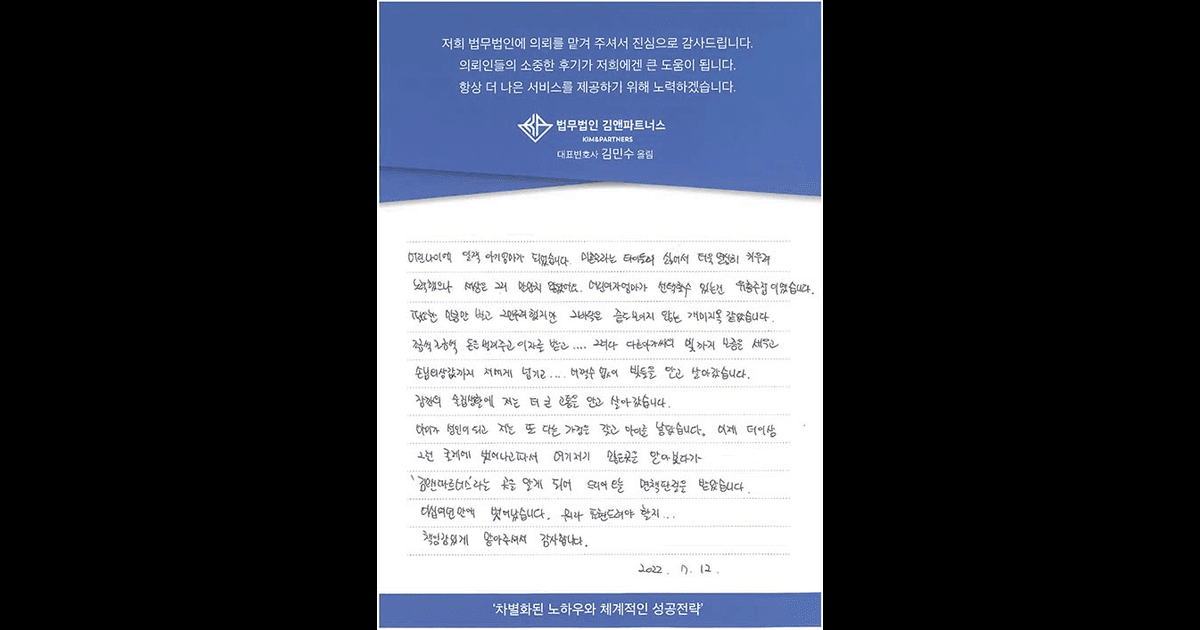 저희 법무법인에 의뢰를 맡겨 주셔서 진심으로 감사드립니다.
의뢰인들의 소중한 후기가 저희에겐 큰 도움이 됩니다.
항상 더 나은 서비스를 제공하기 위해 노력하겠습니다.
법무법인 김앤파트너스
KIM&PARTNERS
대표변호사 김민수 올림
어린나이에 일찍 아기엄마가 되었습니다. 미혼모라는 타이틀이 싫어서 더욱 열심히 키우려
노력했으나 세상은 그리 만만치 않았어요. 어린여자엄마가 선택할수 있는건 유흥주점이었습니다.
필요한 만큼만 벌고 그만두려했지만 그바닥은 끝도보이지 않는 개미지옥 같았습니다.
돈을 빌려주고 이자를 받고.... 그러다 다른아가씨의 빚까지 보증을 세우고
손님외상값까지 저에게 넘기고.... 어쩔수 없이 빚들을 안고 살아갔습니다.
저는 더 큰 고통을 안고 살아갔습니다.
아이가 성인이되고 저는 또 다른 가정을 갖고 아이를 낳았습니다. 이제 더이상
그런 굴레에 벗어나고파서 여기저기 많은곳을 알아보다가
'김앤파트너스'라는 곳을 알게 되어 드디어 오늘 면책판결을 받았습니다.
벗어났습니다. 뭐라 표현드려야 할지...
책임감있게 맡아주셔서 감사합니다.
2022. 7. 12.
'차별화된 노하우와 체계적인 성공전략'